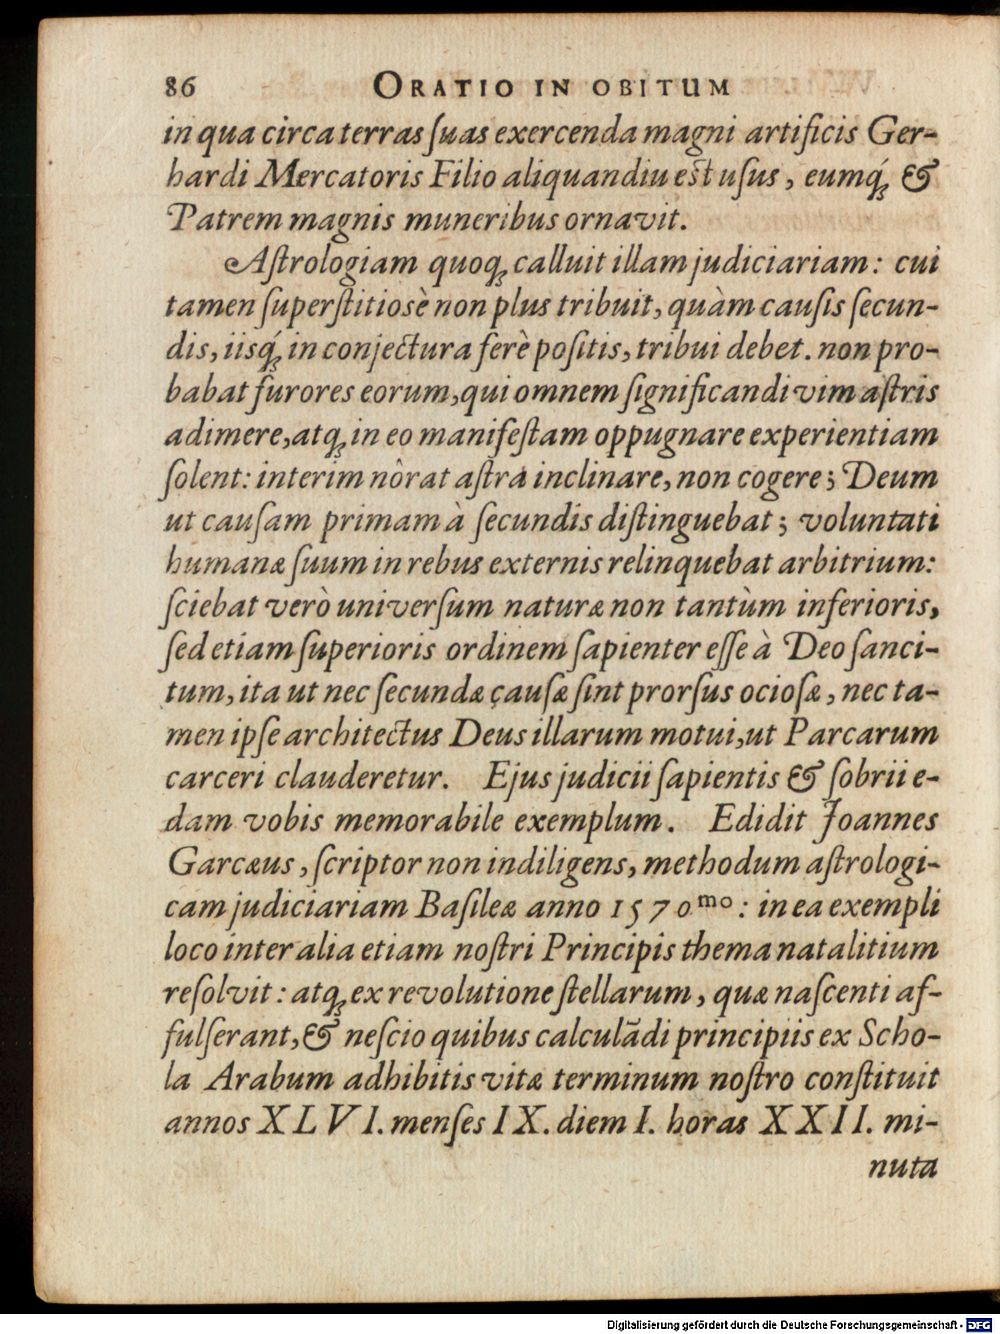 86 ORATIO IN OBITUM
in qua circa terras ſuas exercenda magni artificis Ger-
hardi Mercatoris Filio aliquandiu eſt uſus, eumq́; &
Patrem magnis muneribus ornavit.
Aſtrologiam quoq; calluit illam judiciariam: cui
tamen ſuperſtitiosè non plus tribuit, quàm cauſis ſecun-
dis, iisq́; in conjectura ferè poſitis, tribui debet. non pro-
babat furores eorum, qui omnem ſignificandi vim aſtris
adimere, atq; in eo manifeſtam oppugnare experientiam
ſolent: interim nôrat aſtra inclinare, non cogere; Deum
ut cauſam primam à ſecundis diſtinguebat; voluntati
humanæ ſuum in rebus externis relinquebat arbitrium:
ſciebat verò univerſum naturæ non tantùm inferioris,
ſed etiam ſuperioris ordinem ſapienter eſſe à Deo ſanci-
tum, ita ut nec ſecundæ cauſæ ſint prorſus ocioſæ, nec ta-
men ipſe architectus Deus illarum motui, ut Parcarum
carceri clauderetur. Ejus judicii ſapientis & ſobrii e-
dam vobis memorabile exemplum. Edidit Joannes
Garcæus, ſcriptor non indiligens, methodum aſtrologi-
cam judiciariam Baſileæ anno 1570.mo: in ea exempli
loco inter alia etiam noſtri Principis thema natalitium
reſolvit: atq; ex revolutione ſtellarum, quæ naſcenti af-
fulſerant, & neſcio quibus calculãdi principiis ex Scho-
la Arabum adhibitis vitæ terminum noſtro conſtituit
annos XLVI. menſes IX. diem I. horas XXII. mi-
nuta
Digitalisierung gefördert durch die Deutsche Forschungsgemeinschaft - DFG